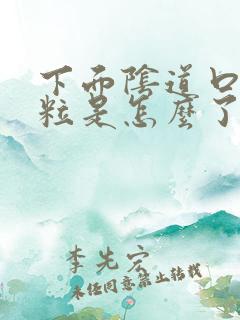 下面陰道口
粒是怎麼了
李先宏
未经同意禁止转载